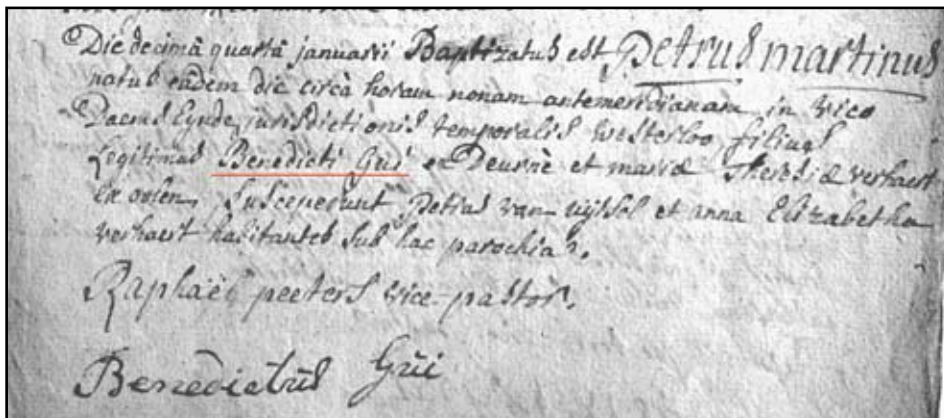 Die decimâ quartâ januarii Baptizatus est Petrus martinus
natus eâdem die circâ horam nonam antemeridianam in vico
Daems Eynde, jurisdictionis temporalis westerloo, filius
Legitimus Benedicti Gui ex Deurne et mariæ Theresiæ verhaert
ex oolen, susceperunt Petrus van et anna Elizabetha
verhaert habitantes sub hac parochia.
Raphaël peeters vice-pastor.
Benedictus Gui